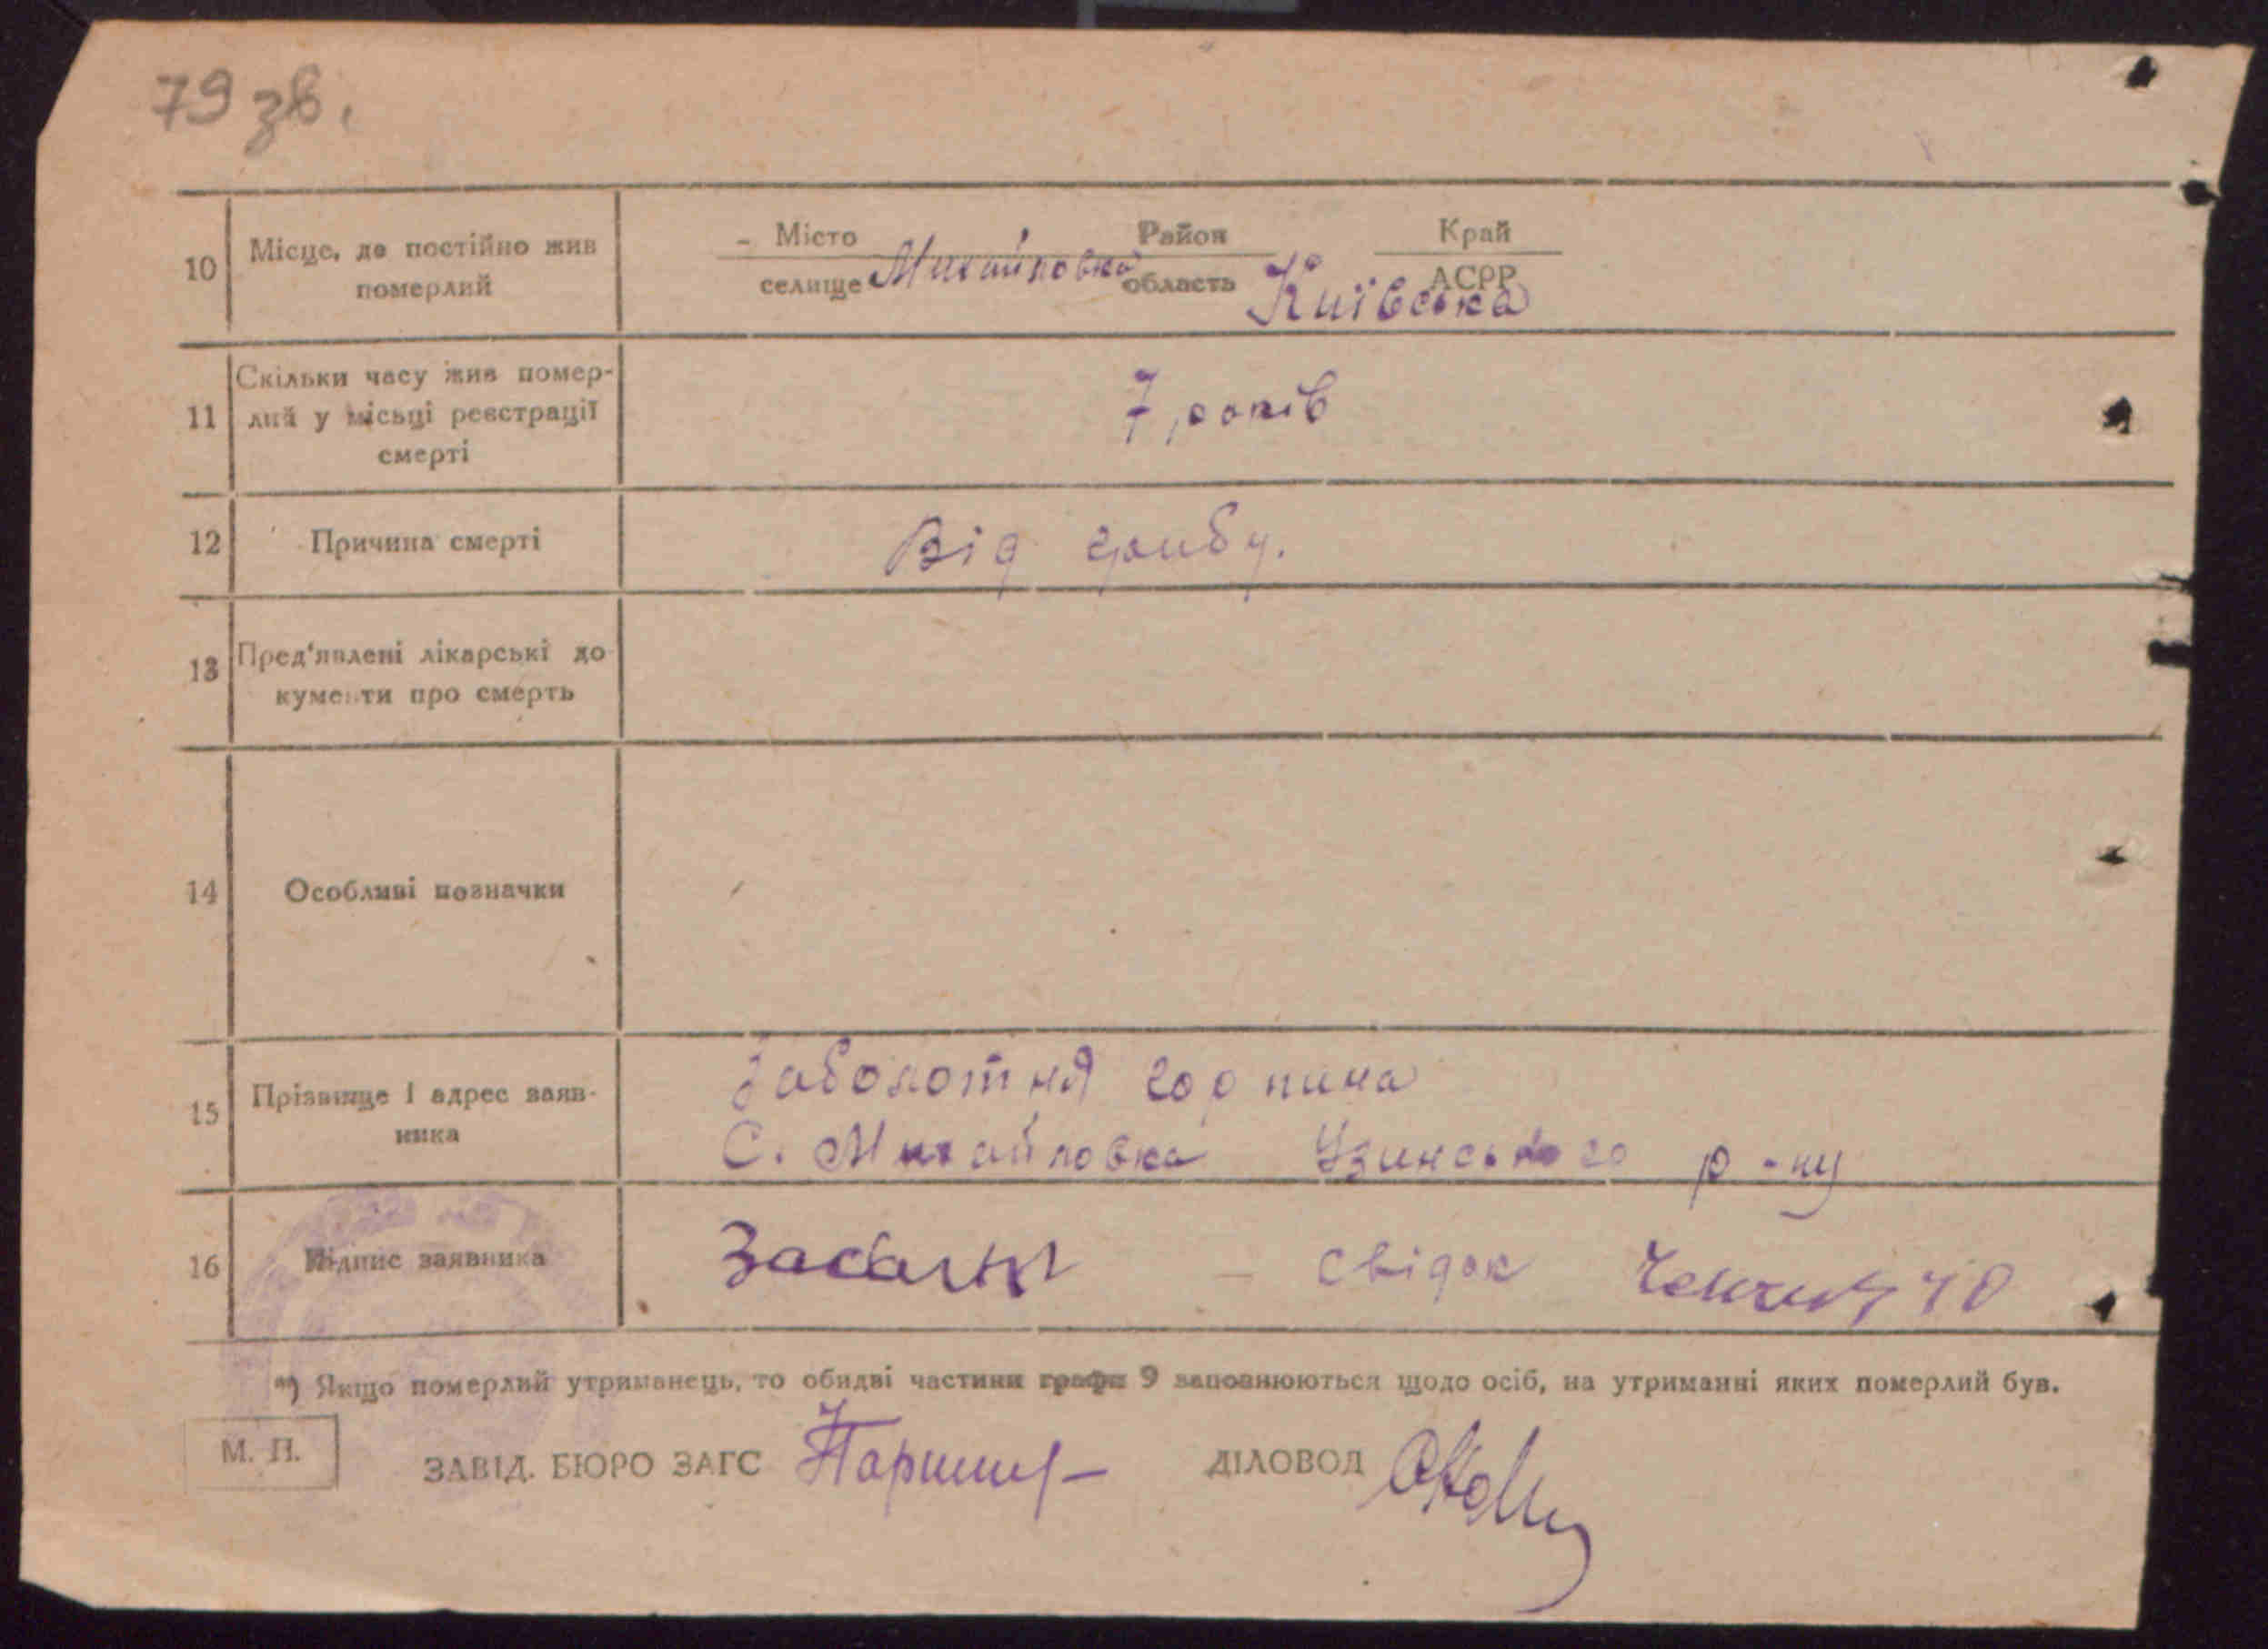 79 зв.
10 Місце, де постійно жив померлий
- Місто Район Край
селище Михайловка область Київська АСРР
11 Скільки часу жив помер-
лий у місьці реєстрації
смерті
7 років
12 Причина смерті Від грибу.
13 Пред'явлені лікарські до
кументи про смерть
14 Особливі позначки
15 Прізвище і адрес заяв-
ника
Заболотня горпина
С. Михайловка Узинського р-ну
16 Підпис заявника свідок
*) Якщо померлий утриманець, то обидві частини графи 9 заповнюються щодо осіб, на утриманні яких померлий був.
М. П. ЗАВІД. БЮРО ЗАГС ДІЛОВОД